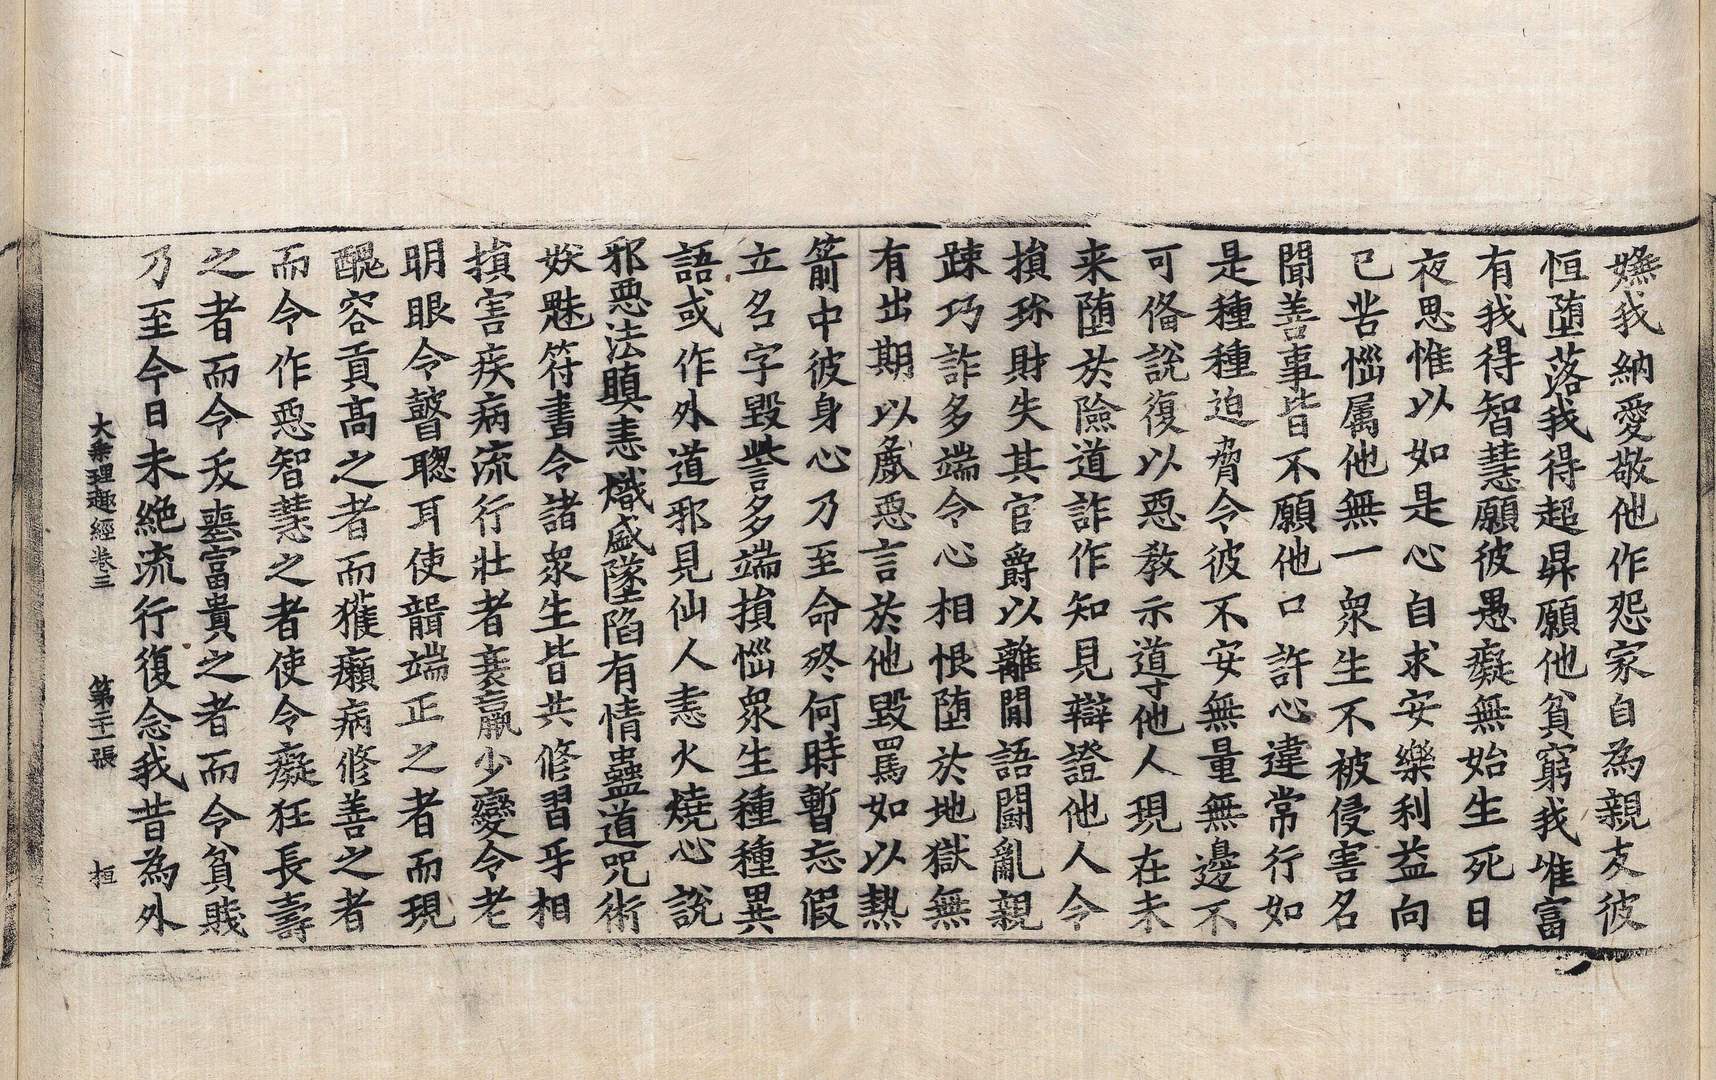 嫌我納愛敬他作怨家自為親友彼
恒墮落我得超昇願他貧窮我唯富
有我得智慧願彼愚癡無始生死日
夜思惟以如是心自求安樂利益向
已苦惱属他無一衆生不被侵害名
聞善事皆不願他口許心違常行如
是種種迫脅令彼不安無量無邊不
可俻說復以惡教示導他人現在未
来墮於險道詐作知見辯證他人令
損珎財失其官爵以離間語鬪亂親
踈巧詐多端令心相恨墮於地獄無
有出期以麁惡言於他毀罵如以熱
箭中彼身心乃至命終何時暫忘假
立名字毀呰多端損惱衆生種種異
語或作外道邪見仙人恚火燒心說
邪惡法瞋恚熾盛墜陷有情蠱道呪術
妖魅符書令諸衆生皆共修習乎相
損害疾病流行壯者衰羸少變令老
明眼令瞽聦耳使聾端正之者而現
醜容貢高之者而獲癩病修善之者
而令作惡智慧之者使令癡狂長壽
之者而令夭喪富貴之者而令貧賤
乃至今日未絶流行復念我昔為外
大乗理趣經卷三 第二十一張 桓